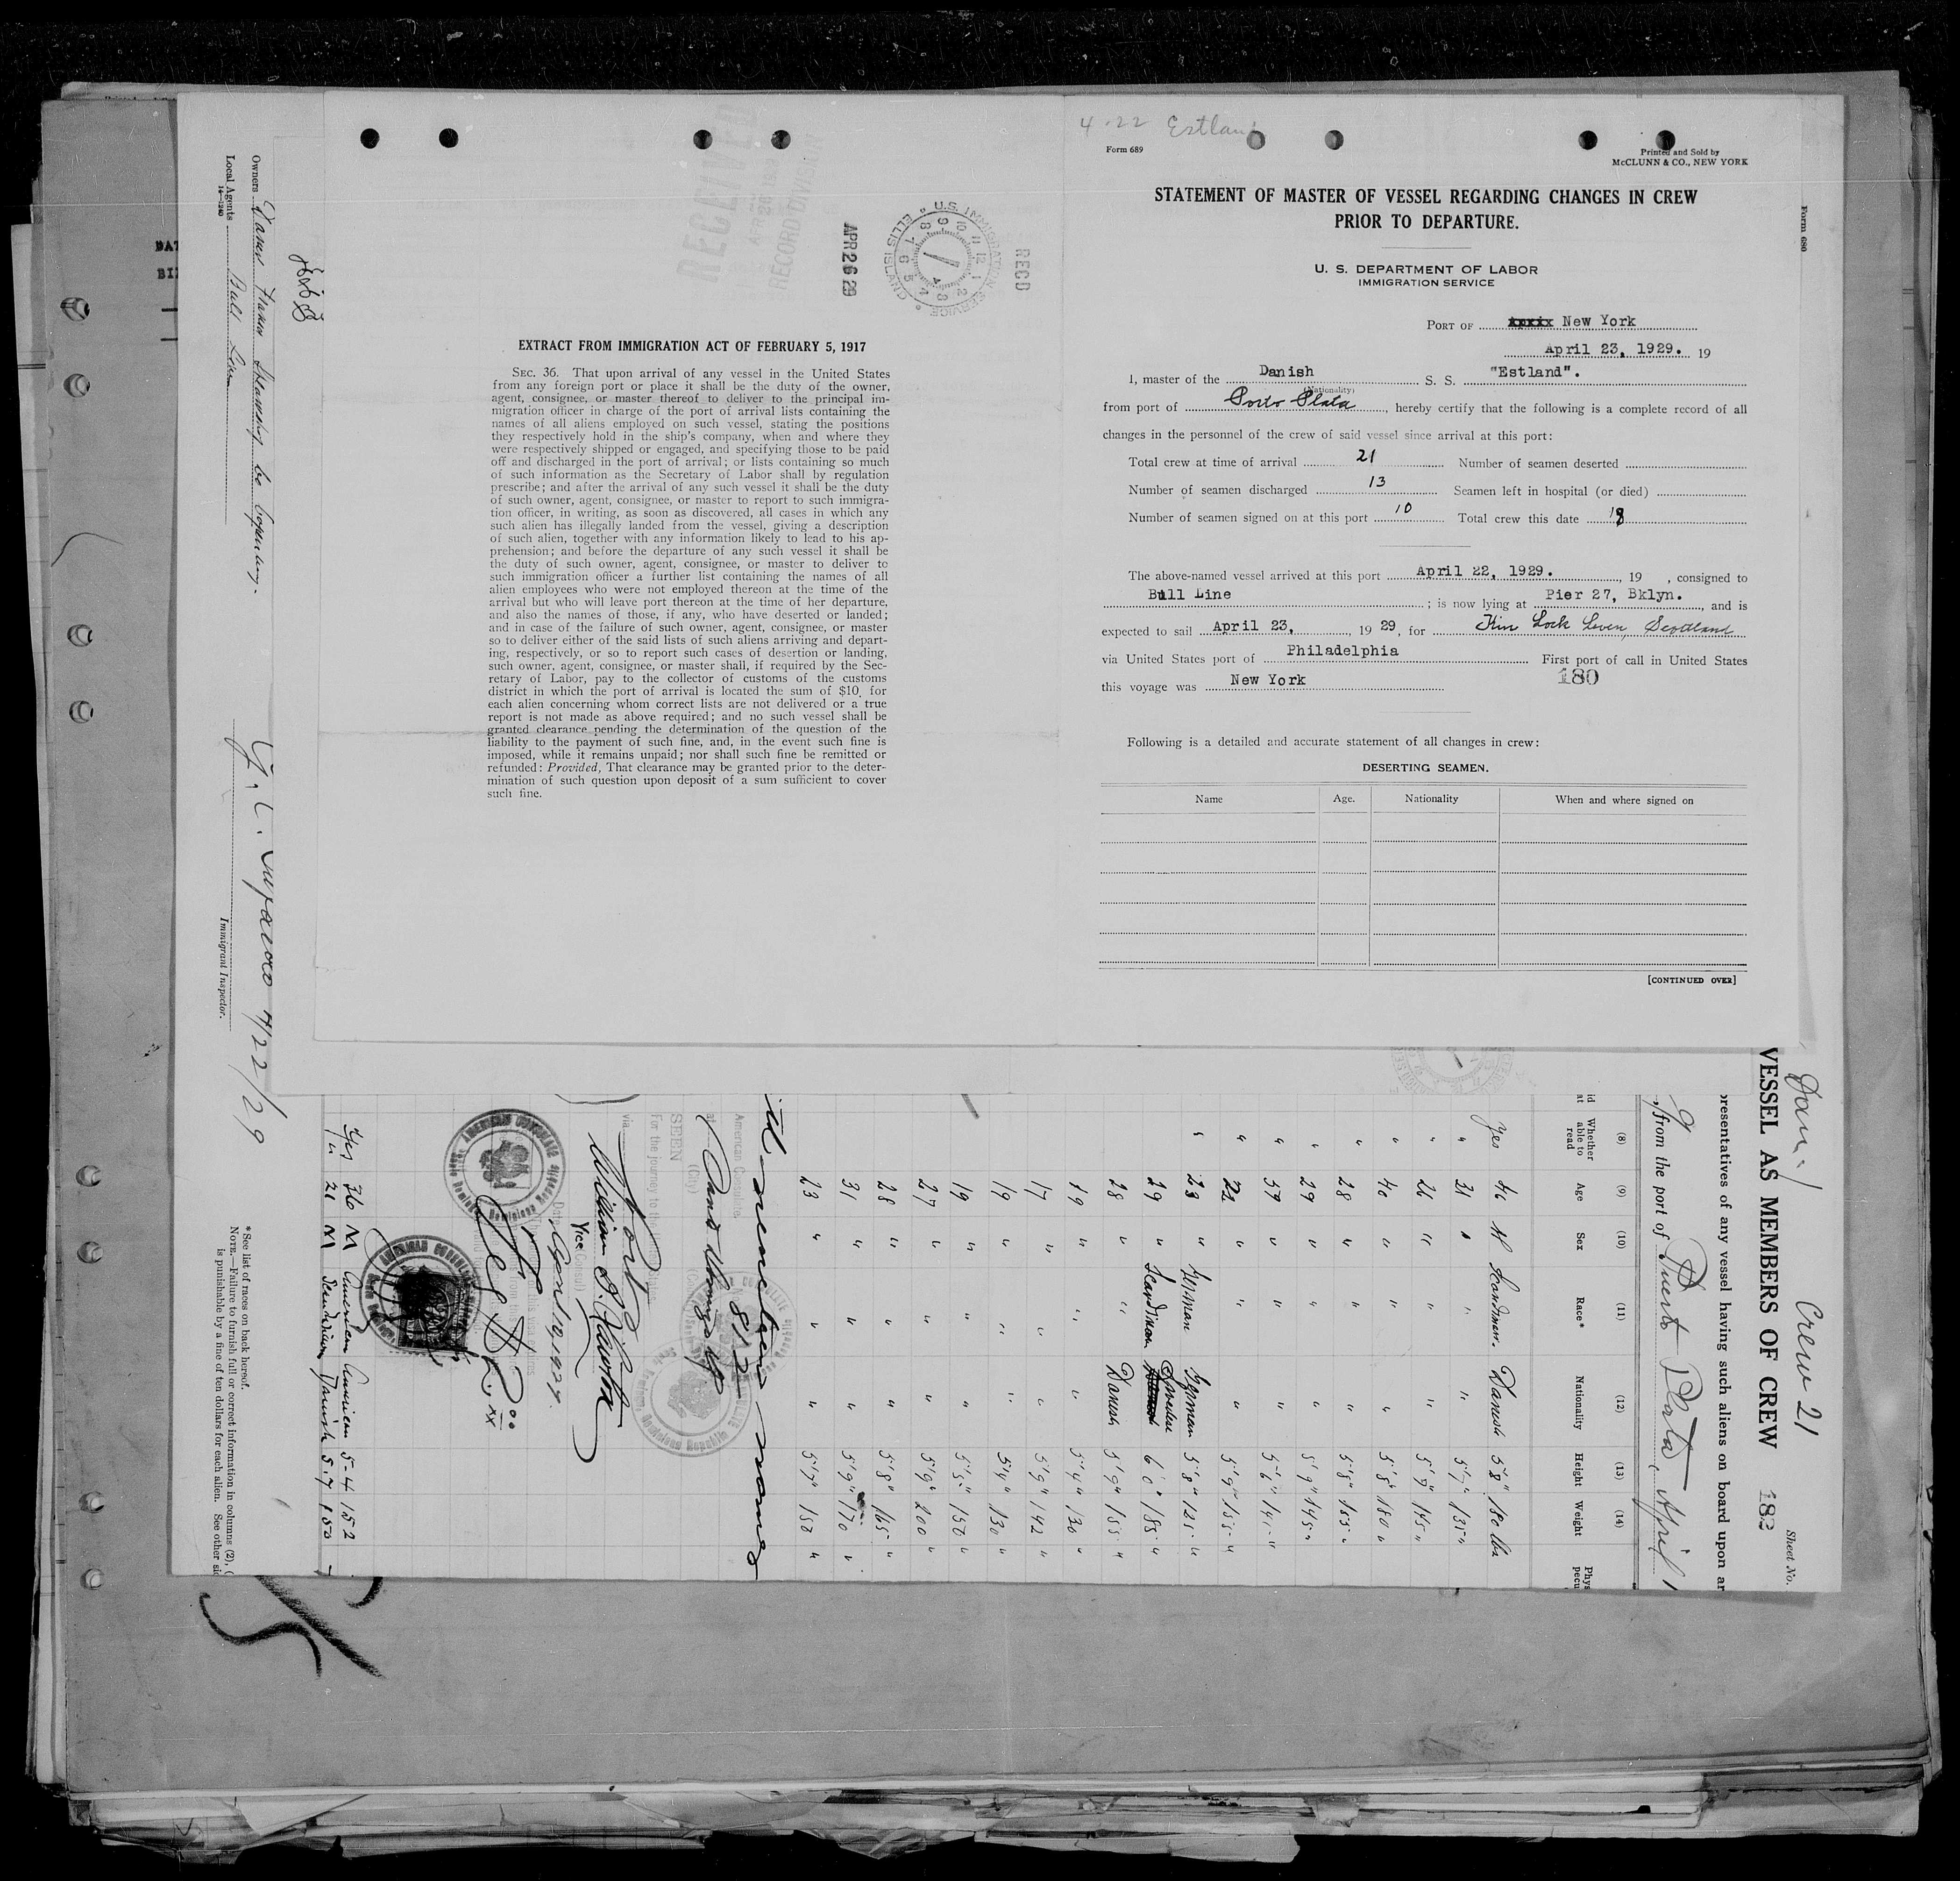 4-22 Estland
Form 689
Printed and Sold by
McCLUNN & CO., NEW YORK
STATEMENT OF MASTER OF VESSEL REGARDING CHANGES IN CREW
PRIOR TO DEPARTURE.
U. S. DEPARTMENT OF LABOR
IMMIGRATION SERVICE
PORT OF New York
April 23, 1929. 19
I, master of the Danish S. S. "Estland".
(Nationality)
from port of Porto Plata, hereby certify that the following is a complete record of all
changes in the personnel of the crew of said vessel since arrival at this port:
Total crew at time of arrival 21 Number of seamen deserted
Number of seamen discharged 13 Seamen left in hospital (or died)
Number of seamen signed on at this port 10 Total crew this date 18
The above-named vessel arrived at this port April 22, 1929. , 19 , consigned to
Bull Line ; is now lying at Pier 27, Bklyn. , and is
expected to sail April 23, , 19 29, for Kin Lock Leven, Scotland
via United States port of Philadelphia First port of call in United States
this voyage was New York 180
Following is a detailed and accurate statement of all changes in crew:
DESERTING SEAMEN.
Name Age. Nationality When and where signed on
[CONTINUED OVER]
Form 680
RECEIVED
RECORD DIVISION
APR 26 29
U.S. IMMIGRATION SERVICE ELLIS ISLAND
REC'D
EXTRACT FROM IMMIGRATION ACT OF FEBRUARY 5, 1917
SEC. 36. That upon arrival of any vessel in the United States
from any foreign port or place it shall be the duty of the owner,
agent, consignee, or master thereof to deliver to the principal im-
migration officer in charge of the port of arrival lists containing the
names of all aliens employed on such vessel, stating the positions
they respectively hold in the ship's company, when and where they
were respectively shipped or engaged, and specifying those to be paid
off and discharged in the port of arrival; or lists containing so much
of such information as the Secretary of Labor shall by regulation
prescribe; and after the arrival of any such vessel it shall be the duty
of such owner, agent, consignee, or master to report to such immigra-
tion officer, in writing, as soon as discovered, all cases in which any
such alien has illegally landed from the vessel, giving a description
of such alien, together with any information likely to lead to his ap-
prehension; and before the departure of any such vessel it shall be
the duty of such owner, agent, consignee, or master to deliver to
such immigration officer a further list containing the names of all
alien employees who were not employed thereon at the time of the
arrival but who will leave port thereon at the time of her departure,
and also the names of those, if any, who have deserted or landed;
and in case of the failure of such owner, agent, consignee, or master
so to deliver either of the said lists of such aliens arriving and depart-
ing, respectively, or so to report such cases of desertion or landing,
such owner, agent, consignee, or master shall, if required by the Sec-
retary of Labor, pay to the collector of customs of the customs
district in which the port of arrival is located the sum of $10 for
each alien concerning whom correct lists are not delivered or a true
report is not made as above required; and no such vessel shall be
granted clearance pending the determination of the question of the
liability to the payment of such fine, and, in the event such fine is
imposed, while it remains unpaid; nor shall such fine be remitted or
refunded: Provided, That clearance may be granted prior to the deter-
mination of such question upon deposit of a sum sufficient to cover
such fine.
Owners
Local Agents Bull Line
14-1240
4/22/29
Immigrant Inspector.
Crew 21
Sheet No.
VESSEL AS MEMBERS OF CREW 182
presentatives of any vessel having such aliens on board upon ar
, from the port of Puerto Plata, April 1
(8) (9) (10) (11) (12) (13) (14)
Whether able to read Age Sex Race* Nationality Height Weight
Yes 46 M Scandinav. Danish 5'8" 180 lbs
" 31 " " " 5'7" 135 "
" 26 " " " 5'9" 145 "
" 40 " " " 5'8" 180 "
" 28 " " " 5'8" 155 "
" 29 " " " 5'9" 145 "
" 59 " " " 5'6" 141 "
" 22 " " " 5'9" 155 "
" 23 " German German 5'8" 125 "
29 " Scandinav Swedish 6'0" 185 "
28 " " Danish 5'9" 155 "
19 " " " 5'4" 130 "
17 " " " 5'9" 142 "
19 " " " 5'4" 130 "
19 " " " 5'5" 150 "
27 " " " 5'9" 200 "
28 " " " 5'8" 165 "
31 " " " 5'9" 170 "
23 " " " 5'7" 150 "
nineteen names
American Consulate,
8172
at
(City)
SEEN
For the journey to the
via
William
Vice Consul
April 10, 1929
AMERICAN CONSULATE
Dominican Republic
Yes 36 M American American 5-4 152
" 21 M Scandinav Danish 5.7 150
*See list of races on back hereof.
NOTE.—Failure to furnish full or correct information in columns (2), (
is punishable by a fine of ten dollars for each alien. See other si